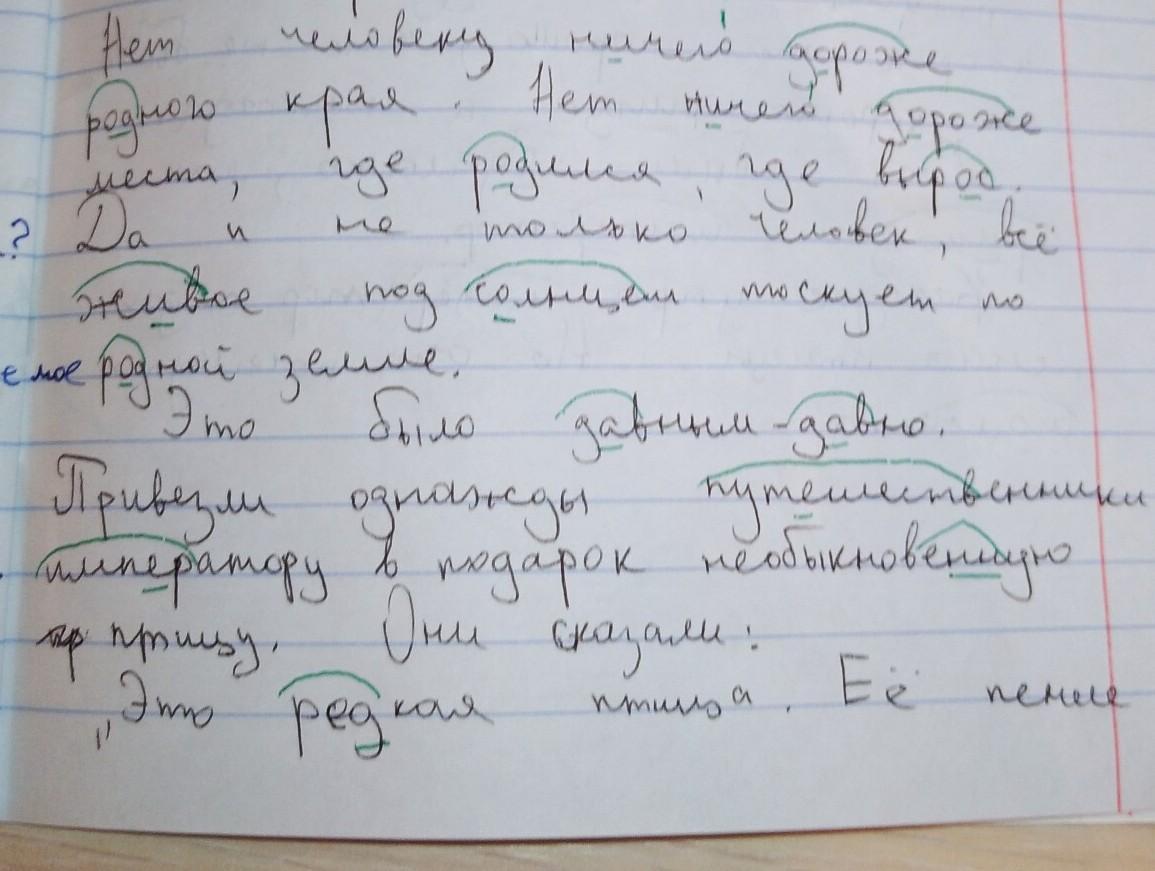 Нет человеку ничего дороже
родного края. Нет ничего дороже
места, где родился, где вырос.
? Да и не только человек, всё
живое под солнцем тоскует по
е мое родной земле.
Это было давным-давно.
Привезли однажды путешественники
императору в подарок необыкновенную
пр птицу. Они сказали:
„Это редкая птица. Её пение